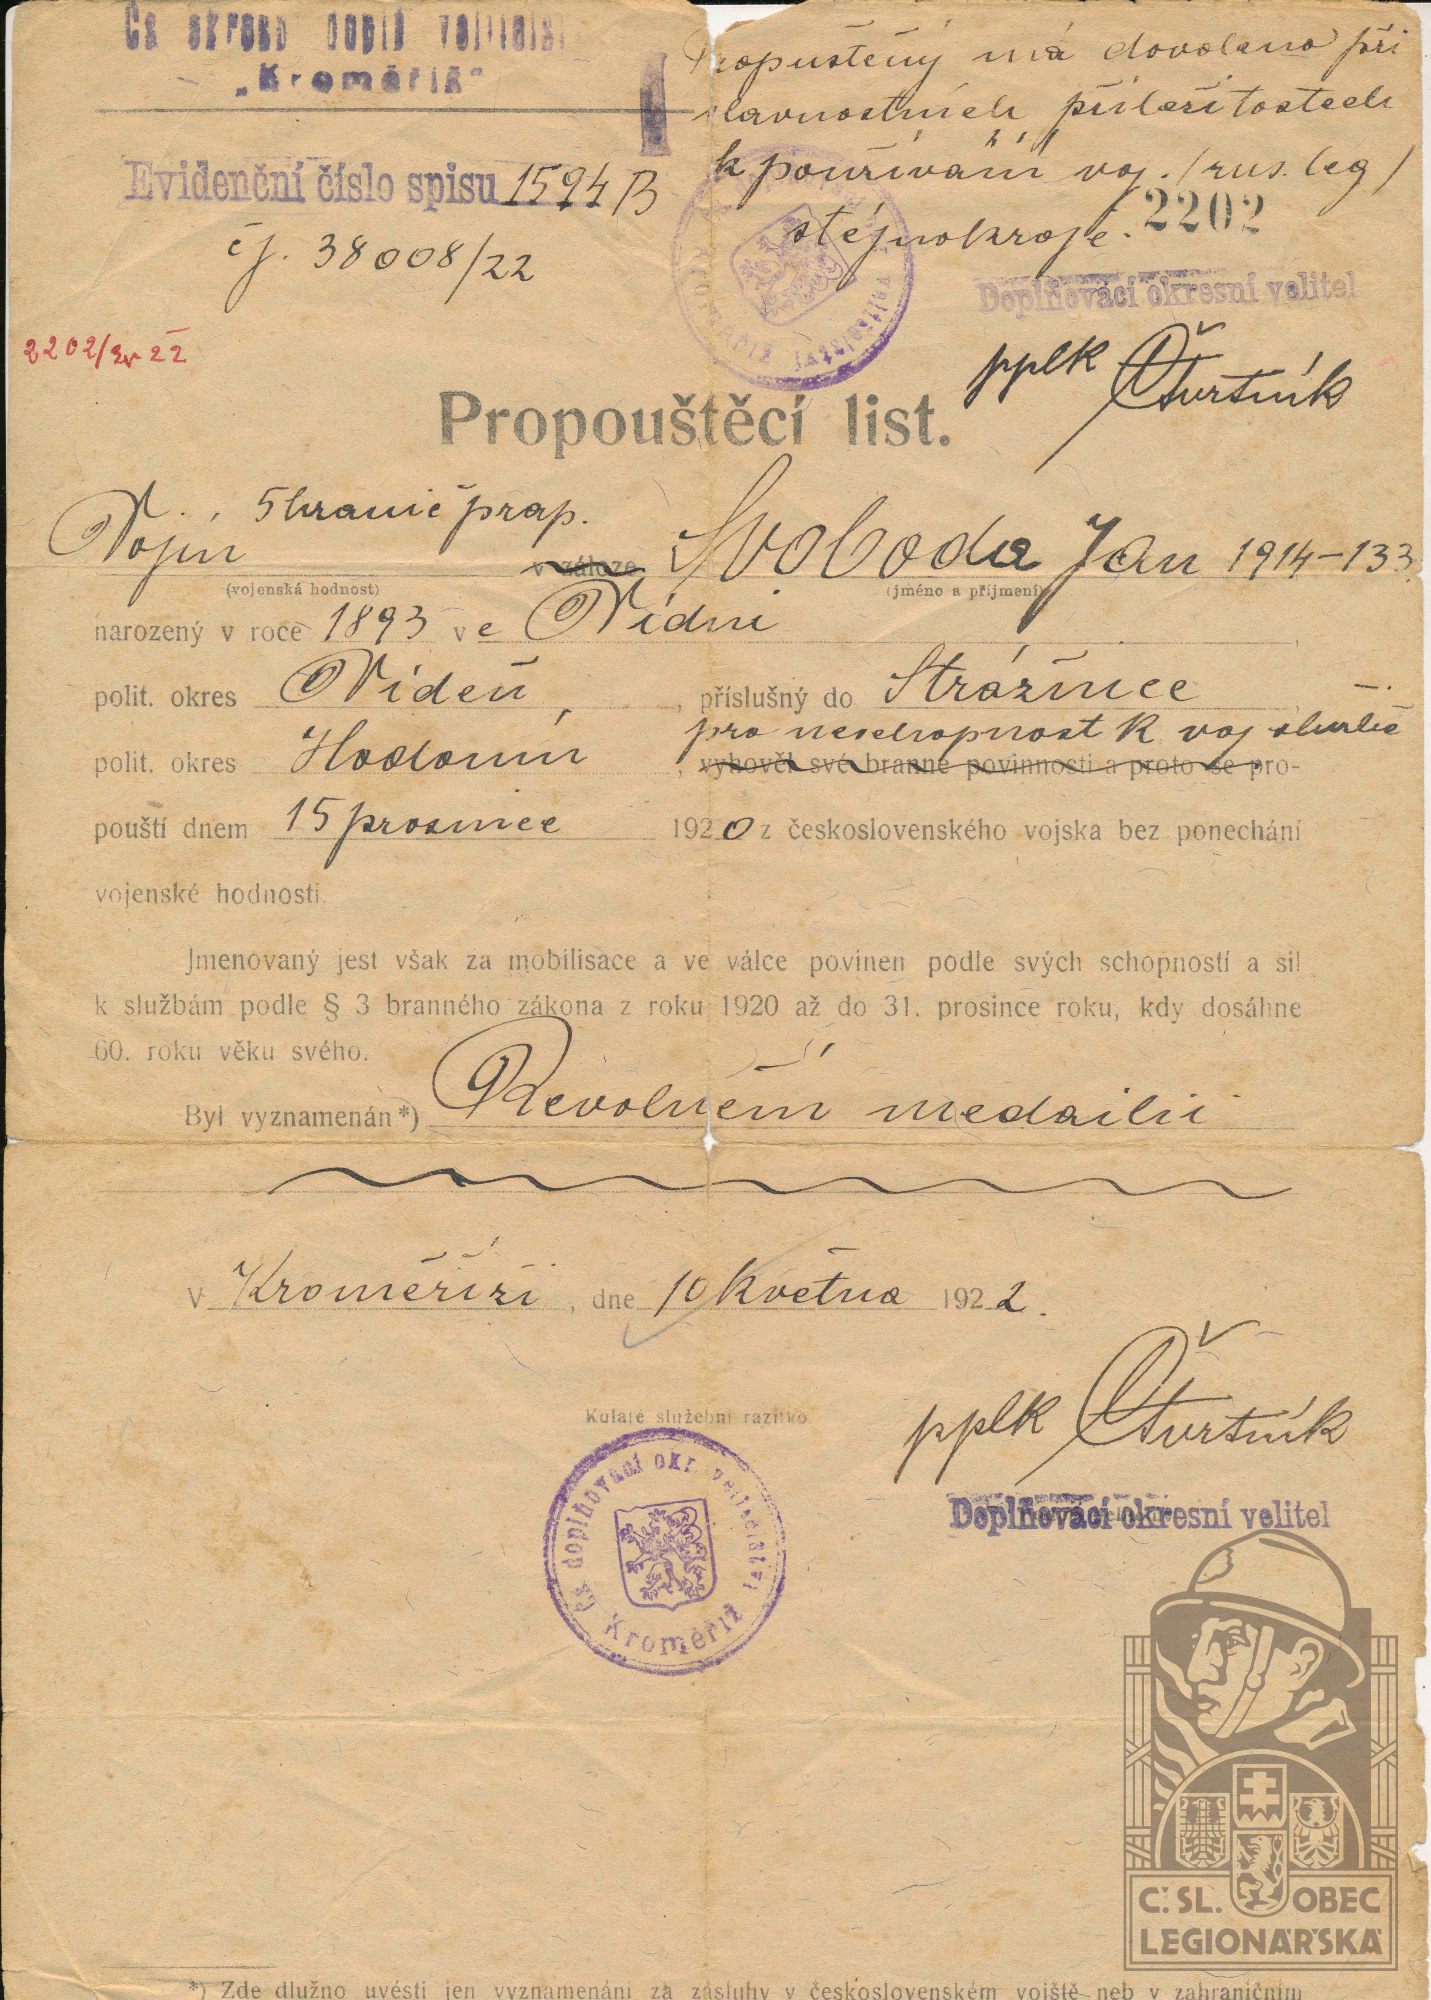 Čs okresn doplň velitelst
„Kroměříž"
Evidenční číslo spisu 1594 B
čj. 38008/22
2202/Ev 22
Propuštěný má dovoleno při
slavnostních příležitostech
k používání voj. (rus. leg)
stejnokroje.
2202
Doplňovací okresní velitel
pplk Čtvrtník
Propouštěcí list.
Vojín, 5 hranič prap. v záloze Svoboda Jan 1914-133.
(vojenská hodnost) (jméno a příjmení)
narozený v roce 1893 ve Vídni
polit. okres Vídeň, příslušný do Strážnice
pro neschopnost k voj službě
polit. okres Hodonín, vyhověl své branné povinnosti a proto se pro-
pouští dnem 15 prosince 1920 z československého vojska bez ponechání
vojenské hodnosti.
Jmenovaný jest však za mobilisace a ve válce povinen podle svých schopností a sil
k službám podle § 3 branného zákona z roku 1920 až do 31. prosince roku, kdy dosáhne
60. roku věku svého.
Byl vyznamenán*) Revoluční medailií
V Kroměříži, dne 10 května 1922.
Kulaté služební razítko
pplk Čtvrtník
Doplňovací okresní velitel
Čs doplňovací okr. velitelství
Kroměříž
Č.SL. OBEC
LEGIONÁŘSKÁ
*) Zde dlužno uvésti jen vyznamenání za zásluhy v československém vojště neb v zahraničním